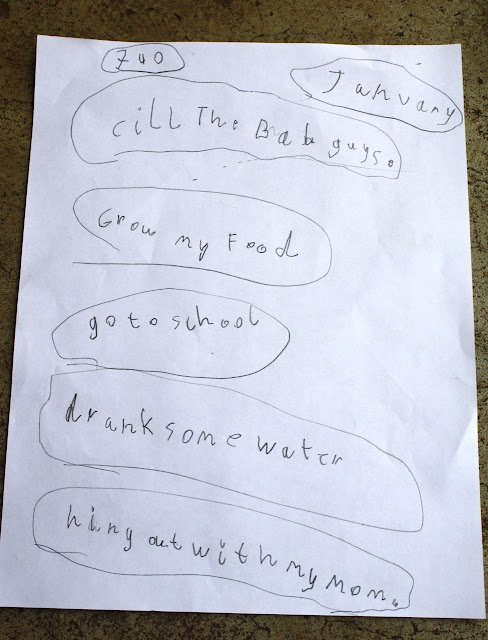 January
cill The Bab guys.
Grow my Food
go to school
drank some water
hing out with my Mom.